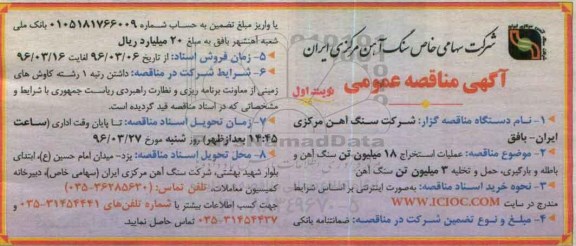 شرکت سهامی خاص سنگ آهن مرکزی ایران
آگهی مناقصه عمومی
نوبت اول
۱- نام دستگاه مناقصه گزار: شرکت سنگ آهن مرکزی
ایران- بافق
۲- موضوع مناقصه: عملیات استخراج ۱۸ میلیون تن سنگ آهن و
باطله و بارگیری، حمل و تخلیه ۳ میلیون تن سنگ آهن
۳- نحوه خرید اسناد مناقصه: به‌صورت اینترنتی بر اساس شرایط
مندرج در سایت WWW.ICIOC.COM
۴- مبلغ و نوع تضمین شرکت در مناقصه: ضمانتنامه بانکی
یا واریز مبلغ تضمین به حساب شماره ۰۱۰۵۱۸۱۷۶۶۰۰۹ بانک ملی
شعبه آهنشهر بافق به مبلغ ۲۰ میلیارد ریال
۵- زمان فروش اسناد: از تاریخ ۹۶/۰۳/۰۶ لغایت ۹۶/۰۳/۱۶
۶- شرایط شرکت در مناقصه: داشتن رتبه ۱ رشته کاوش های
زمینی از معاونت برنامه ریزی و نظارت راهبردی ریاست جمهوری با شرایط و
مشخصاتی که در اسناد مناقصه قید گردیده است.
۷- زمان تحویل اسناد مناقصه: تا پایان وقت اداری (ساعت
۱۴:۴۵ بعدازظهر) روز شنبه مورخ ۹۶/۰۳/۲۷
۸- محل تحویل اسناد مناقصه: یزد- میدان امام حسین (ع)، ابتدای
بلوار شهید بهشتی، شرکت سنگ آهن مرکزی ایران (سهامی خاص)، دبیرخانه
کمیسیون معاملات، تلفن تماس: (۳۶۲۸۵۶۳۰-۰۳۵)
جهت کسب اطلاعات بیشتر با شماره تلفن‌های ۳۱۴۵۴۴۴۱-۰۳۵ و
۳۱۴۵۴۴۳۷-۰۳۵ تماس حاصل نمایید.